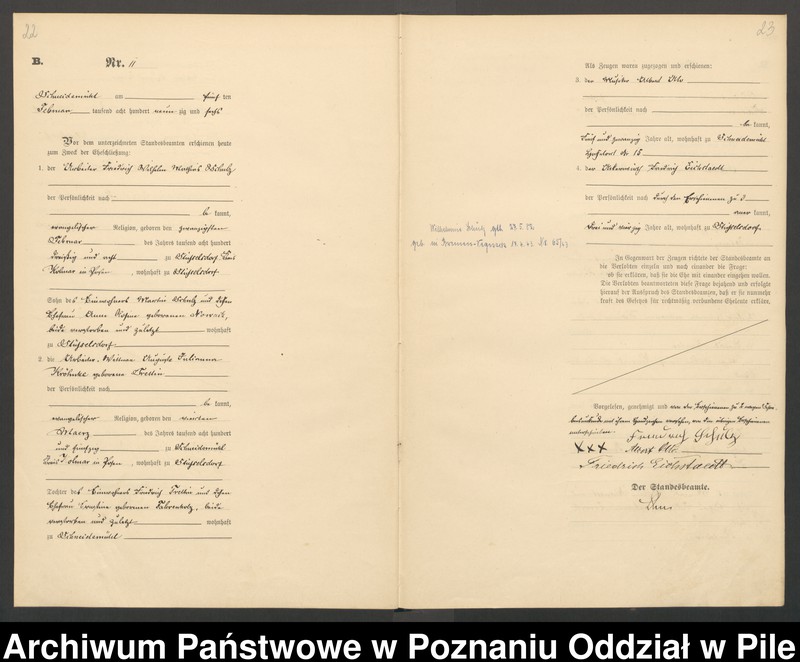 22
B. Nr. 11
Schneidemühl am fünf ten
Februar tausend acht hundert neunzig und sechs
Vor dem unterzeichneten Standesbeamten erschienen heute
zum Zweck der Eheschließung:
1. der Arbeiter Friedrich Wilhelm Schulz
der Persönlichkeit nach
be kannt,
evangelischer Religion, geboren den zwanzigsten
Februar des Jahres tausend acht hundert
dreißig und acht zu Stüsselsdorf, Kreis
Kolmar in Posen, wohnhaft zu Stüsselsdorf
Sohn des Einwohners Martin Schulz und dessen
Ehefrau Anna geborenen
beide verstorben und zuletzt wohnhaft
zu Stüsselsdorf
2. die Arbeiter-Wittwe Auguste Julianna
geborene Trettin
der Persönlichkeit nach
be kannt,
evangelischer Religion, geboren den vierten
Maerz des Jahres tausend acht hundert
und fünfzig zu Schneidemühl
Kreis Kolmar in Posen, wohnhaft zu Stüsselsdorf
Tochter des Einwohners Friedrich Trettin und dessen
Ehefrau geborenen Fahrenholz, beide
verstorben und zuletzt wohnhaft
zu Schneidemühl
23
Als Zeugen waren zugezogen und erschienen:
3. der Albert Otto
der Persönlichkeit nach
be kannt,
fünf und zwanzig Jahre alt, wohnhaft zu Schneidemühl
15
4. der Friedrich Eichstaedt
der Persönlichkeit nach durch den Erschienenen zu 3
aner kannt,
drei und vierzig Jahre alt, wohnhaft zu Stüsselsdorf.
In Gegenwart der Zeugen richtete der Standesbeamte an
die Verlobten einzeln und nach einander die Frage:
ob sie erklären, daß sie die Ehe mit einander eingehen wollen.
Die Verlobten beantworteten diese Frage bejahend und erfolgte
hierauf der Ausspruch des Standesbeamten, daß er sie nunmehr
kraft des Gesetzes für rechtmäßig verbundene Eheleute erkläre.
Vorgelesen, genehmigt und von der Erschienenen zu 2 wegen
mit ihrem Handzeichen versehen, von den übrigen Erschienenen
unterschrieben
Friedrich Schulz
XXX Albert Otto
Friedrich Eichstaedt
Der Standesbeamte.
Archiwum Państwowe w Poznaniu Oddział w Pile